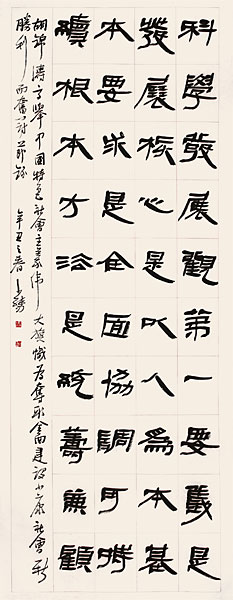 科學發展觀第一要義是
發展核心是以人為本基
本要求是全面協調可持
續根本方法是統籌兼顧
胡錦濤高舉中國特色社會主義偉大旗幟為奪取全面建設小康社會新
勝利而奮鬥節錄 辛丑之春